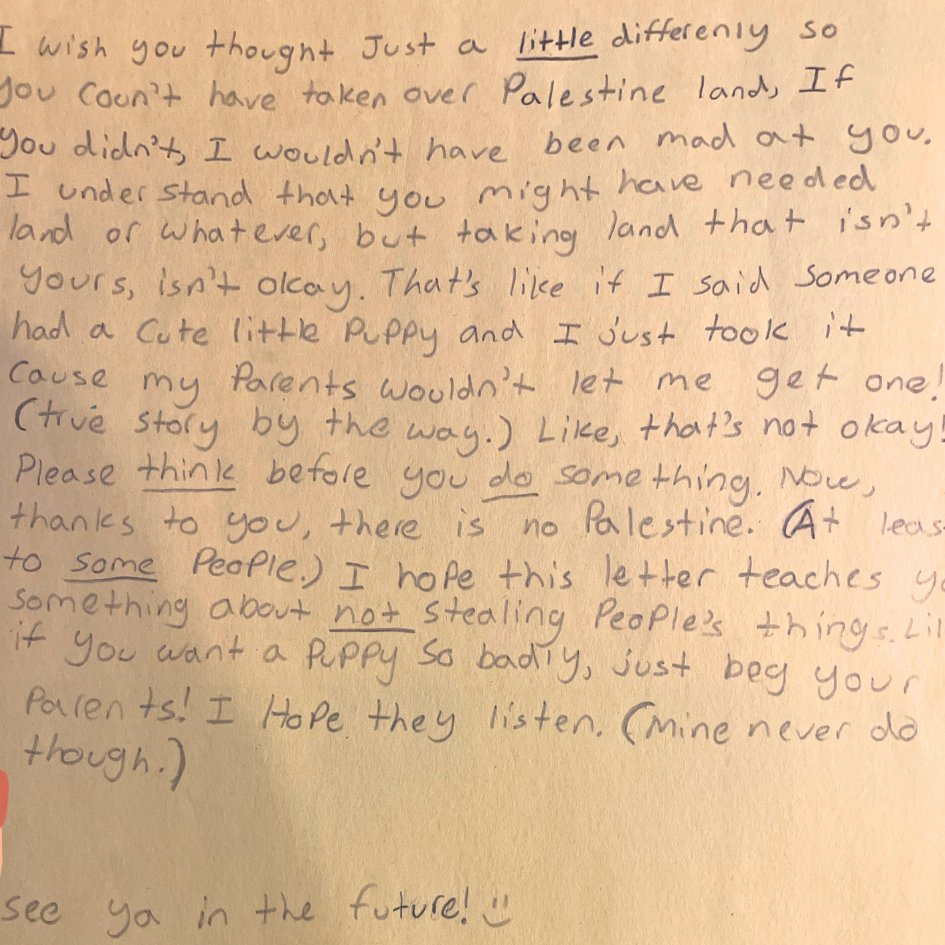 I wish you thought Just a little differenly so
you coun't have taken over Palestine land, If
you didn't, I wouldn't have been mad at you.
I understand that you might have needed
land or whatever, but taking land that isn't
yours, isn't okay. That's like if I said someone
had a cute little Puppy and I just took it
cause my Parents wouldn't let me get one!
(true story by the way.) Like, that's not okay!
Please think before you do something. Now,
thanks to you, there is no Palestine. (At leas
to some People.) I hope this letter teaches y
something about not stealing People's things. Li
if you want a Puppy so badly, just beg your
Parents! I Hope they listen. (Mine never do
though.)
see ya in the future!